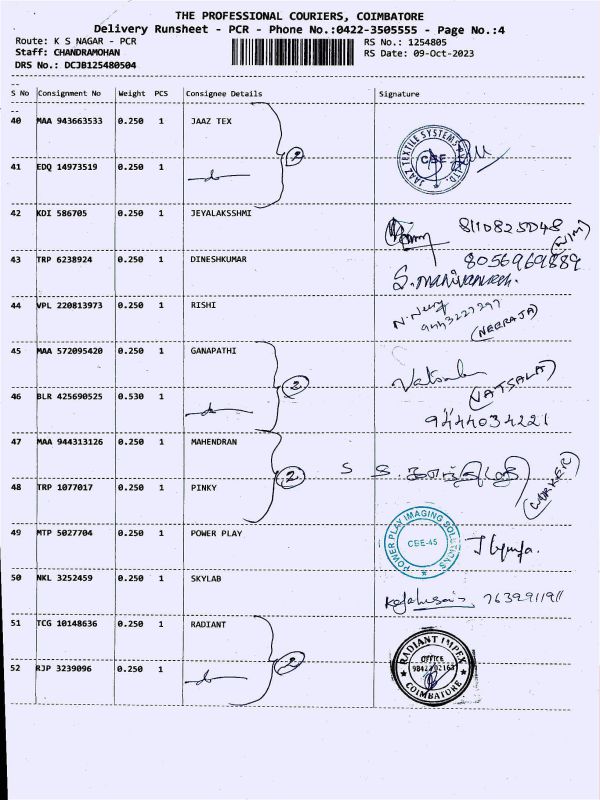 THE PROFESSIONAL COURIERS, COIMBATORE
Delivery Runsheet - PCR - Phone No.:0422-3505555 - Page No.:4
Route: K S NAGAR - PCR RS No.: 1254805
Staff: CHANDRAMOHAN RS Date: 09-Oct-2023
DRS No.: DCJB125480504
S No Consignment No Weight PCS Consignee Details Signature
40 MAA 943663533 0.250 1 JAAZ TEX
JAAZ TEXTILE SYSTEMS PVT LTD. CBE
2
41 EDQ 14973519 0.250 1
42 KDI 586705 0.250 1 JEYALAKSSHMI 8110825048
43 TRP 6238924 0.250 1 DINESHKUMAR 8056969889
S. Manivannan.
44 VPL 220813973 0.250 1 RISHI 9443227297
(NEERAJA)
45 MAA 572095420 0.250 1 GANAPATHI Vatsala
2 (VATSALA)
46 BLR 425690525 0.530 1 9444034221
47 MAA 944313126 0.250 1 MAHENDRAN
2 (WORKER)
48 TRP 1077017 0.250 1 PINKY
49 MTP 5027704 0.250 1 POWER PLAY
POWER PLAY IMAGING SOLUTIONS CBE-45
50 NKL 3252459 0.250 1 SKYLAB 7639911911
51 TCG 10148636 0.250 1 RADIANT
2 RADIANT IMPEX OFFICE COIMBATORE
52 RJP 3239096 0.250 1